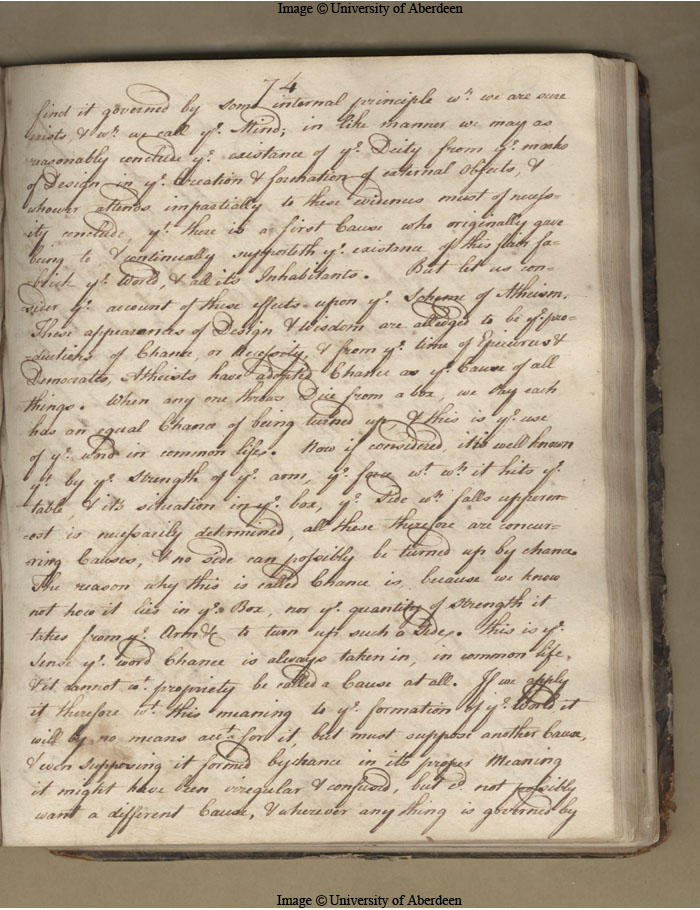 Image © University of Aberdeen
74
find it governed by some internal principle wh. we are sure
exists, & wh. we call ye. Mind; in like manner we may as
reasonably conclude ye. existance of ye. Deity from ye. marks
of Design in ye. Creation & formation of external Objects, &
whoever attends impartially to these evidences must of necess-
ity conclude, yt. there is a first Cause who originally gave
being to & continually supporteth ye. existance of this fair fa-
-brick ye. World, & all its Inhabitants. But let us con-
-sider ye. account of these effects upon ye. Scheme of Atheism.
These appearances of Design & Wisdom are alledged to be ye. pro-
-ductions of Chance, or Necessity, & from ye. time of Epicurus &
Democrates, Atheists have adopted Chance as ye. Cause of all
things. When any one throws Dice from a box, we say each
has an equal Chance of being turned up, & this is ye. use
of ye. word in common life. Now if considered, it is well known
yt. by ye. strength of ye. arm, ye. force wt. wh. it hits ye.
table & its situation in ye. box, ye. side wh. falls upperm-
-ost is necessarily determined, all these therefore are concur-
-ring Causes, & no side can possibly be turned up by chance
The reason why this is called Chance is, because we know
not how it lies in ye. Box, nor ye. quantity of strength it
takes from ye. Arm &c to turn up such a Side. this is ye.
sense ye. word Chance is always taken in, in common life.
& it cannot wt. propriety be called a Cause at all. If we apply
it therefore wt. this meaning to ye. formation of ye. World it
will by no means acct. for it, but must suppose another Cause,
& even supposing it formed by chance in its proper Meaning
it might have been irregular & confused, but cd. not possibly
want a different Cause, & wherever any thing is governed by
Image © University of Aberdeen